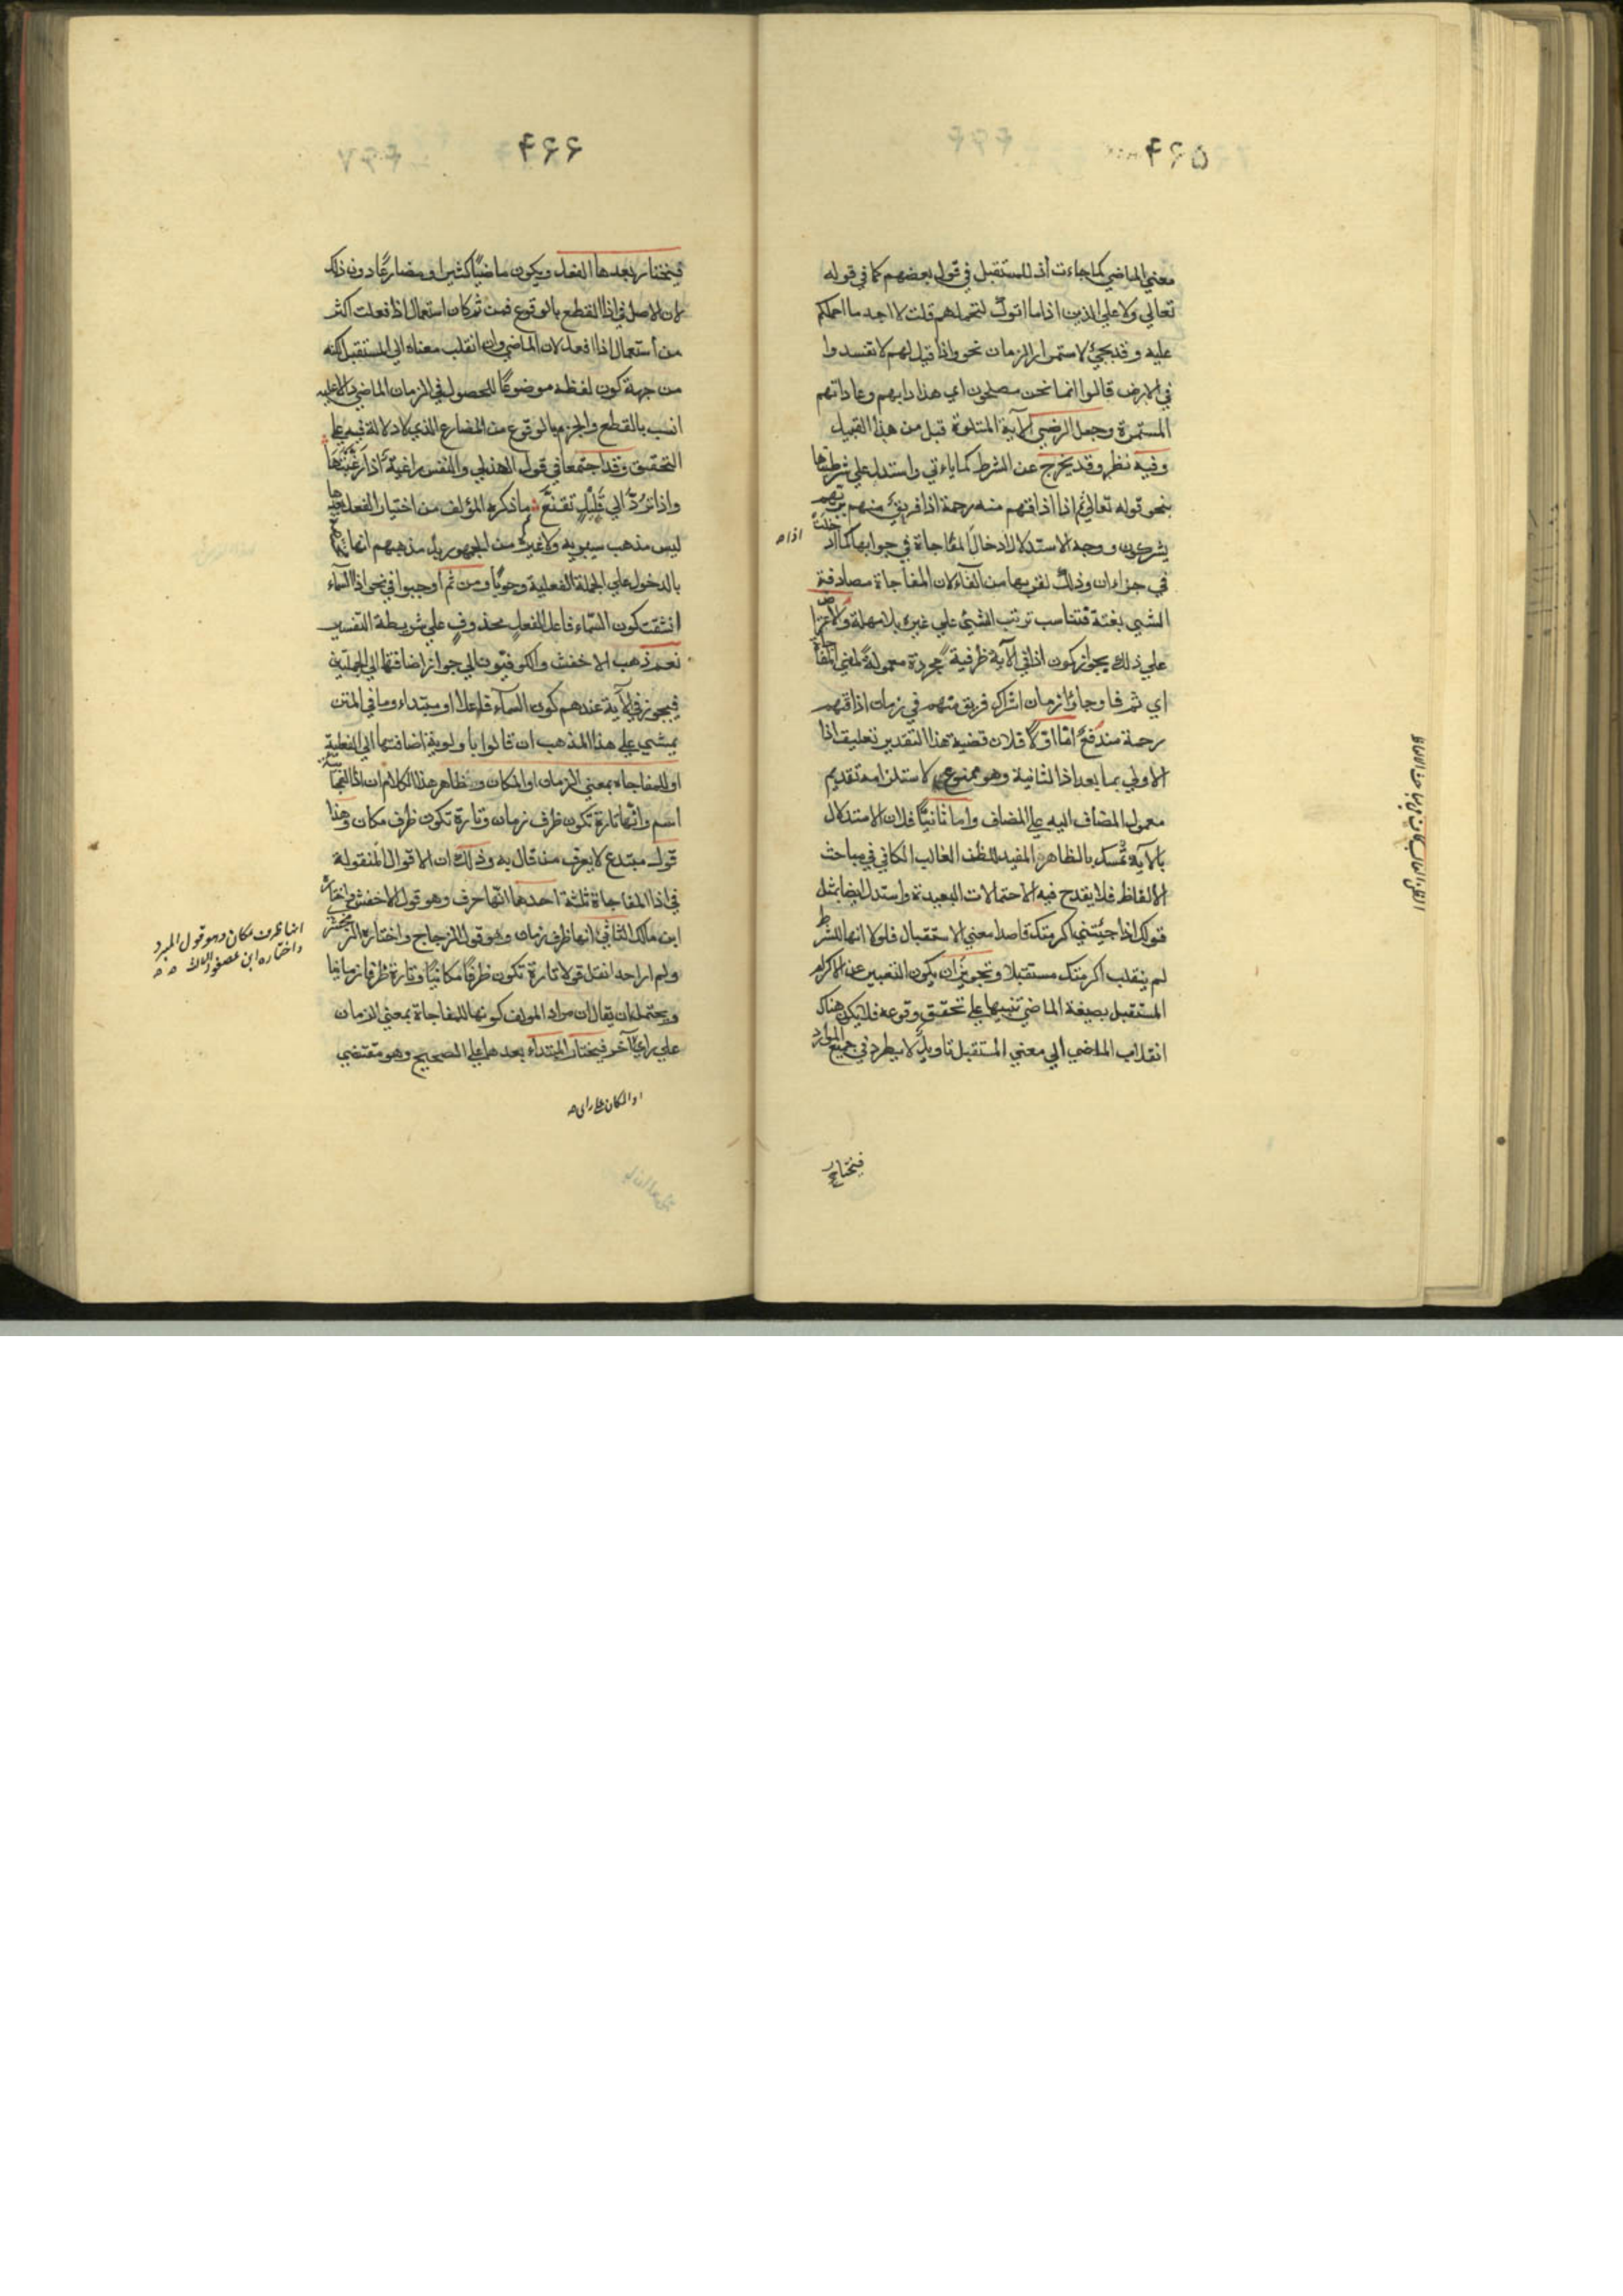 ۴۶۵
معني الماضي كما جاءت اذ للمستقبل في قول بعضهم كما في قوله
تعالي ولا علي الذين اذا ما اتوك لتحملهم قلت لا اجد ما احملكم
عليه وقد يجئ لاستمرار الزمان نحو واذا قيل لهم لا تفسدوا
في الارض قالوا انما نحن مصلحون اي هذا دابهم وعاداتهم
المستمرة وجعل الرضي الآية المتلوة قبل من هذا القبيل
وفيه نظر وقد يخرج عن الشرط كما ياءتي واستدل علي شرطيتها
بنحو قوله تعالي ثم اذا اذاقهم منه رحمة اذا فريق منهم بربهم
يشركون ووجه الاستدلال ادخال المفاجاة في جوابها كما دخلت
اذا ه
في جزاء ان وذلك لقربها من الفاء لان المفاجاة مصادفة
الشيئ بغتة فتناسب ترتب الشيئ علي غيره بلا مهلة والاعتراض
علي ذلك بجواز كون اذا في الآية ظرفية مجردة معمولة لمعني المفاجاة
اي ثم فاوجاؤا زمان اشراك فريق منهم في زمان اذاقتهم
رحمة مندفع امّا اوّلا فلان قضية هذا التقدير تعليق اذا
الاولي بما بعد اذا الثانية وهو ممنوع لاستلزامه تقديم
معمول المضاف اليه علي المضاف واما ثانيًا فلان الاستدلال
بالآية تمسك بالظاهر المفيد للظن الغالب الكافي في مباحث
الالفاظ فلا يقدح فيه الاحتمالات البعيدة واستدل ايضا بمثل
قولك اذا جئتني اكرمتك قاصدا معني الاستقبال فلولا انها للشرط
لم ينقلب اكرمتك مستقبلا وتجويز ان يكون التعبير عن الاكرام
المستقبل بصيغة الماضي تنبيها علي تحقق وقوعه فلا يكون هناك
انقلاب الماضي الي معني المستقبل تاويل لا يطرد في جميع الموارد
فيختار
۴۶۶
فيختار بعدها الفعل ويكون ماضيًا كثيرا ومضارعًا دون ذلك
لان الاصل في اذا القطع بالوقوع فمن ثم كان استعمال اذا فعلت اكثر
من استعمال اذا افعل لان الماضي وان انقلب معناه الي المستقبل لكنه
من جهة كون لفظه موضوعًا للحصول في الزمان الماضي بالاغلبية
انسب بالقطع والجزم بالوقوع من المضارع الذي لا دلالة فيه علي
التحقيق وقد اجتمعا في قول الهذلي والنفس راغبة اذا رغّبتها
واذا تردّ الي قليل تقنع ما ذكره المؤلف من اختيار الفعل بعدها
ليس مذهب سيبويه ولا غيره من الجمهور بل مذهبهم انها
بالدخول علي الجملة الفعلية وجوبًا ومن ثم اوجبوا في نحو اذا السماء
انشقت كون السماء فاعلا لفعل محذوف علي شريطة التفسير
نعم ذهب الاخفش والكوفيون الي جواز اضافتها الي الجملتين
فيجوز في الآية عندهم كون السماء فاعلا او مبتداء وما في المتن
يمشي علي هذا المذهب ان قالوا باولوية اضافتها الي الفعلية
او للمفاجاه بمعني الزمان او المكان وظاهر هذا الكلام ان اذا الفجائية
اسم وانّها تارة تكون ظرف زمان وتارة تكون ظرف مكان وهذا
قول مبتدع لا يعرف من قال به وذلك ان الاقوال المنقولة
في اذا المفاجاة ثلثة احدها انّها حرف وهو قول الاخفش واختاره
ابن مالك الثاني انها ظرف زمان وهو قول الزجاج واختاره الزمخشري
انها ظرف مكان وهو قول المبرد
واختاره ابن عصفور الثالث
ولم ار احد انقل قولا تارة تكون ظرفًا مكانيًا وتارة ظرفا زمانيا
ويحتمل ان يقال ان مراد المولف كونها للمفاجاة بمعني الزمان
علي راي آخر فيختار المبتداء بعدها علي الصحيح وهو مقتضي
او المكان علي راي